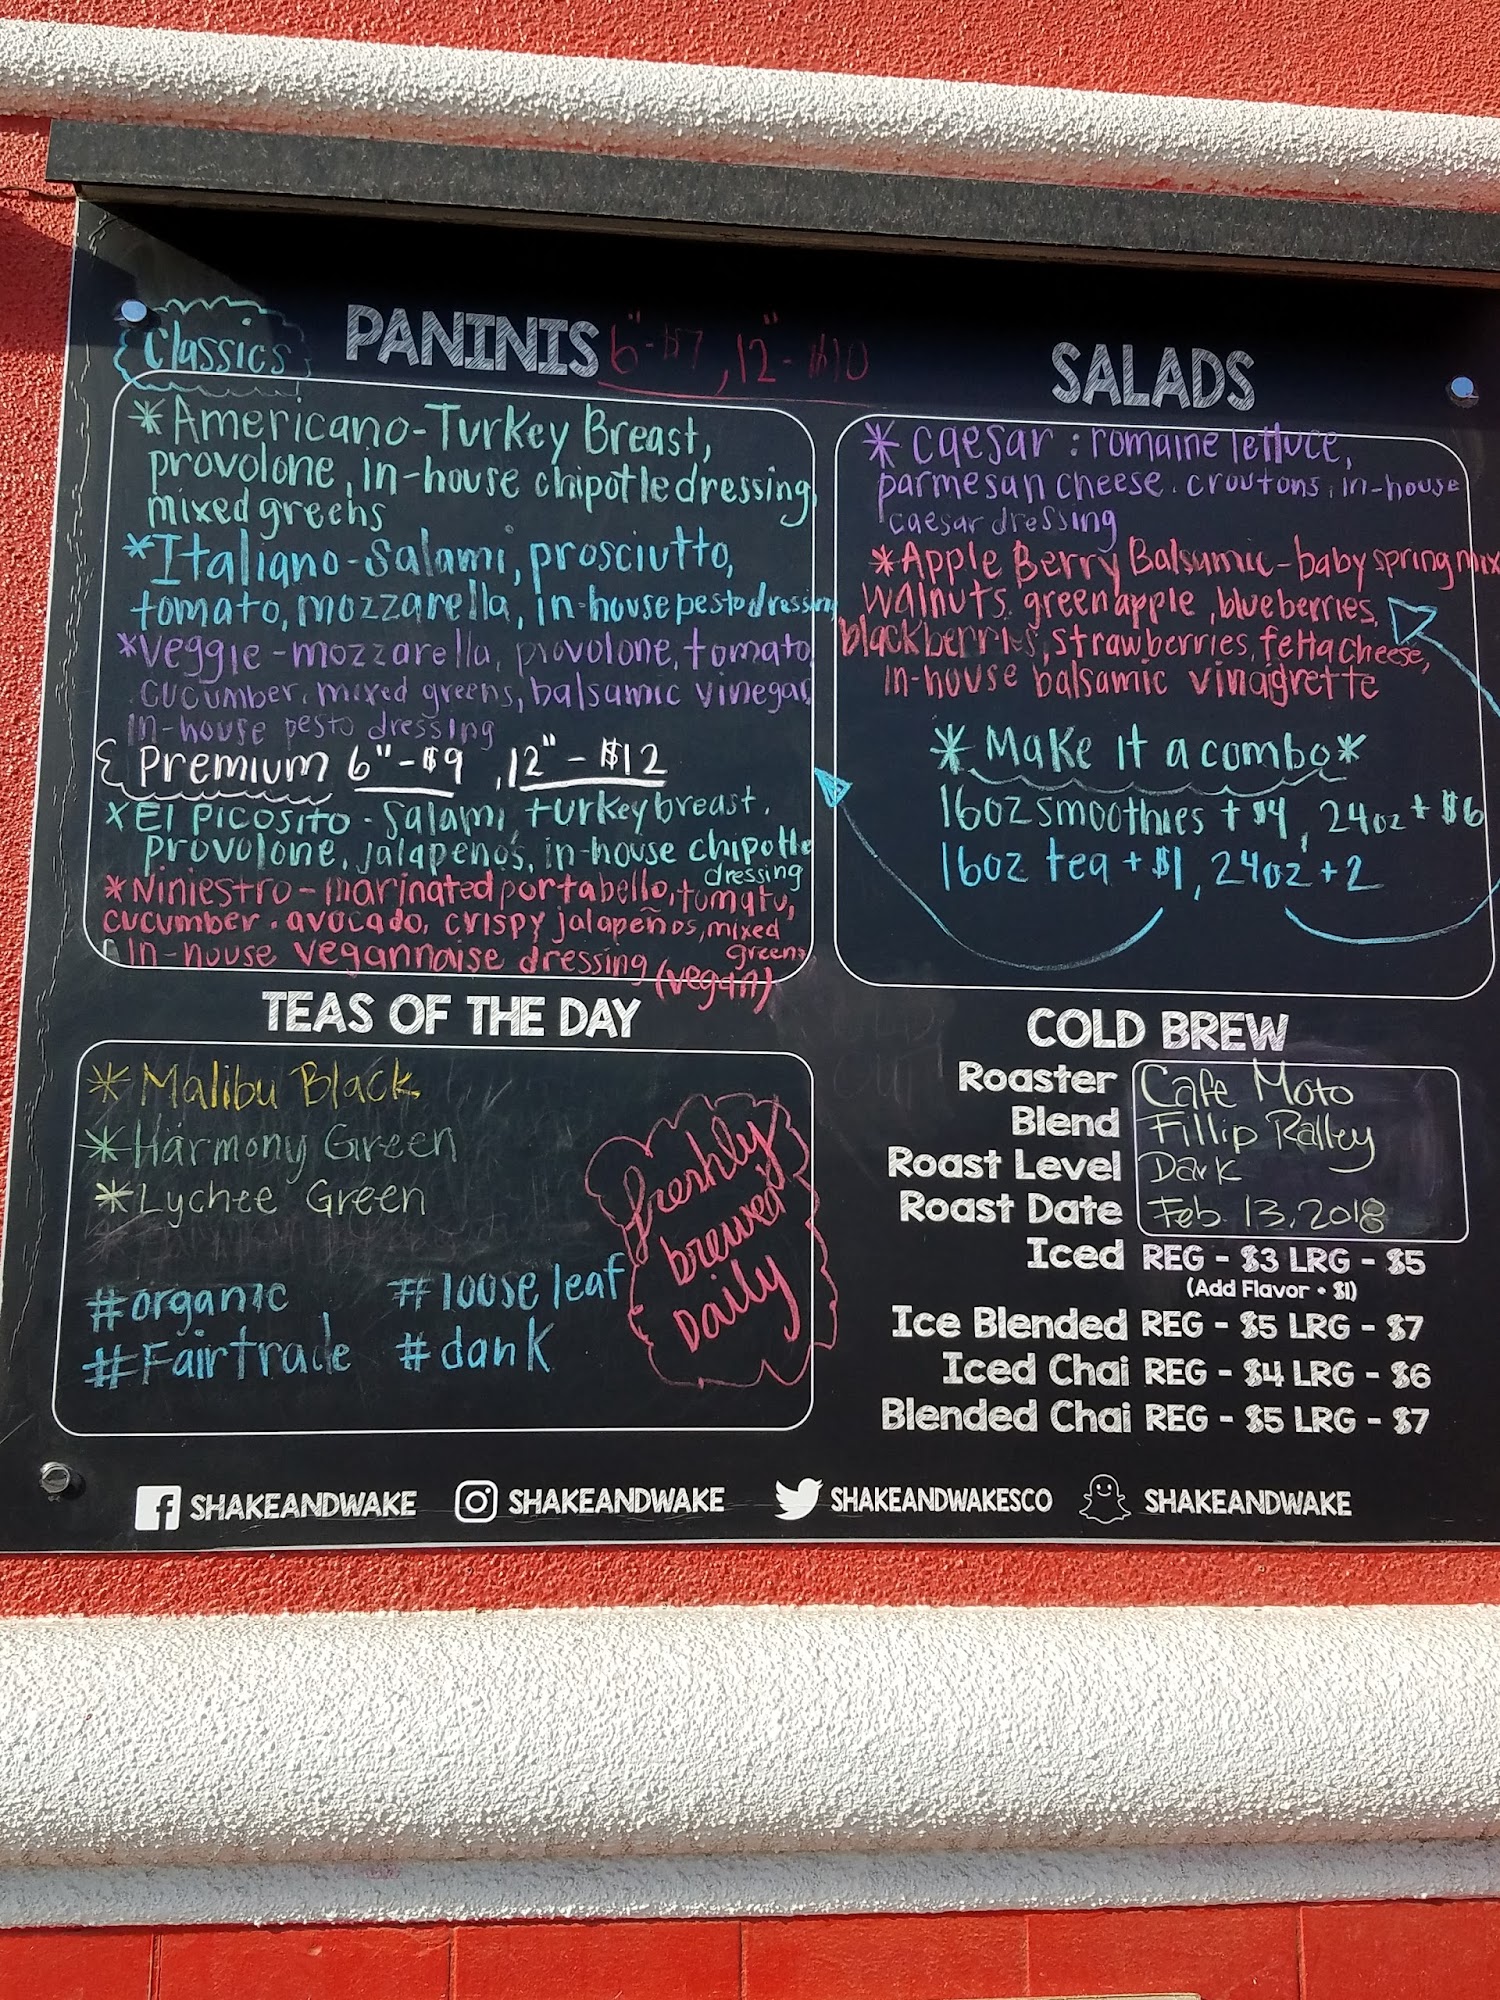 Classics PANINIS 6"-$7, 12"-$10
*Americano-Turkey Breast,
provolone, in-house chipotle dressing,
mixed greens
*Italiano-Salami, prosciutto,
tomato, mozzarella, in-house pesto dressing
*Veggie-mozzarella, provolone, tomato,
cucumber, mixed greens, balsamic vinegar,
in-house pesto dressing
Premium 6"-$9, 12"-$12
*El Picosito-Salami, turkey breast,
provolone, jalapeños, in-house chipotle
dressing
*Niniestro-marinated portabello, tomato,
cucumber, avocado, crispy jalapeños, mixed
greens
in-house vegannaise dressing (vegan)
SALADS
*caesar: romaine lettuce,
parmesan cheese, croutons, in-house
caesar dressing
*Apple Berry Balsamic-baby spring mix
walnuts, green apple, blueberries,
blackberries, strawberries, fetta cheese,
in-house balsamic vinaigrette
*Make it a combo*
16oz smoothies + $4, 24oz + $6
16oz tea + $1, 24oz + 2
TEAS OF THE DAY
*Malibu Black
*Harmony Green
*Lychee Green
#organic #loose leaf
#Fairtrade #dank
freshly
brewed
Daily
COLD BREW
Roaster Cafe Moto
Blend Fillip Ralley
Roast Level Dark
Roast Date Feb. 13, 2018
Iced REG - $3 LRG - $5
(Add Flavor • $1)
Ice Blended REG - $5 LRG - $7
Iced Chai REG - $4 LRG - $6
Blended Chai REG - $5 LRG - $7
SHAKEANDWAKE SHAKEANDWAKE SHAKEANDWAKESCO SHAKEANDWAKE